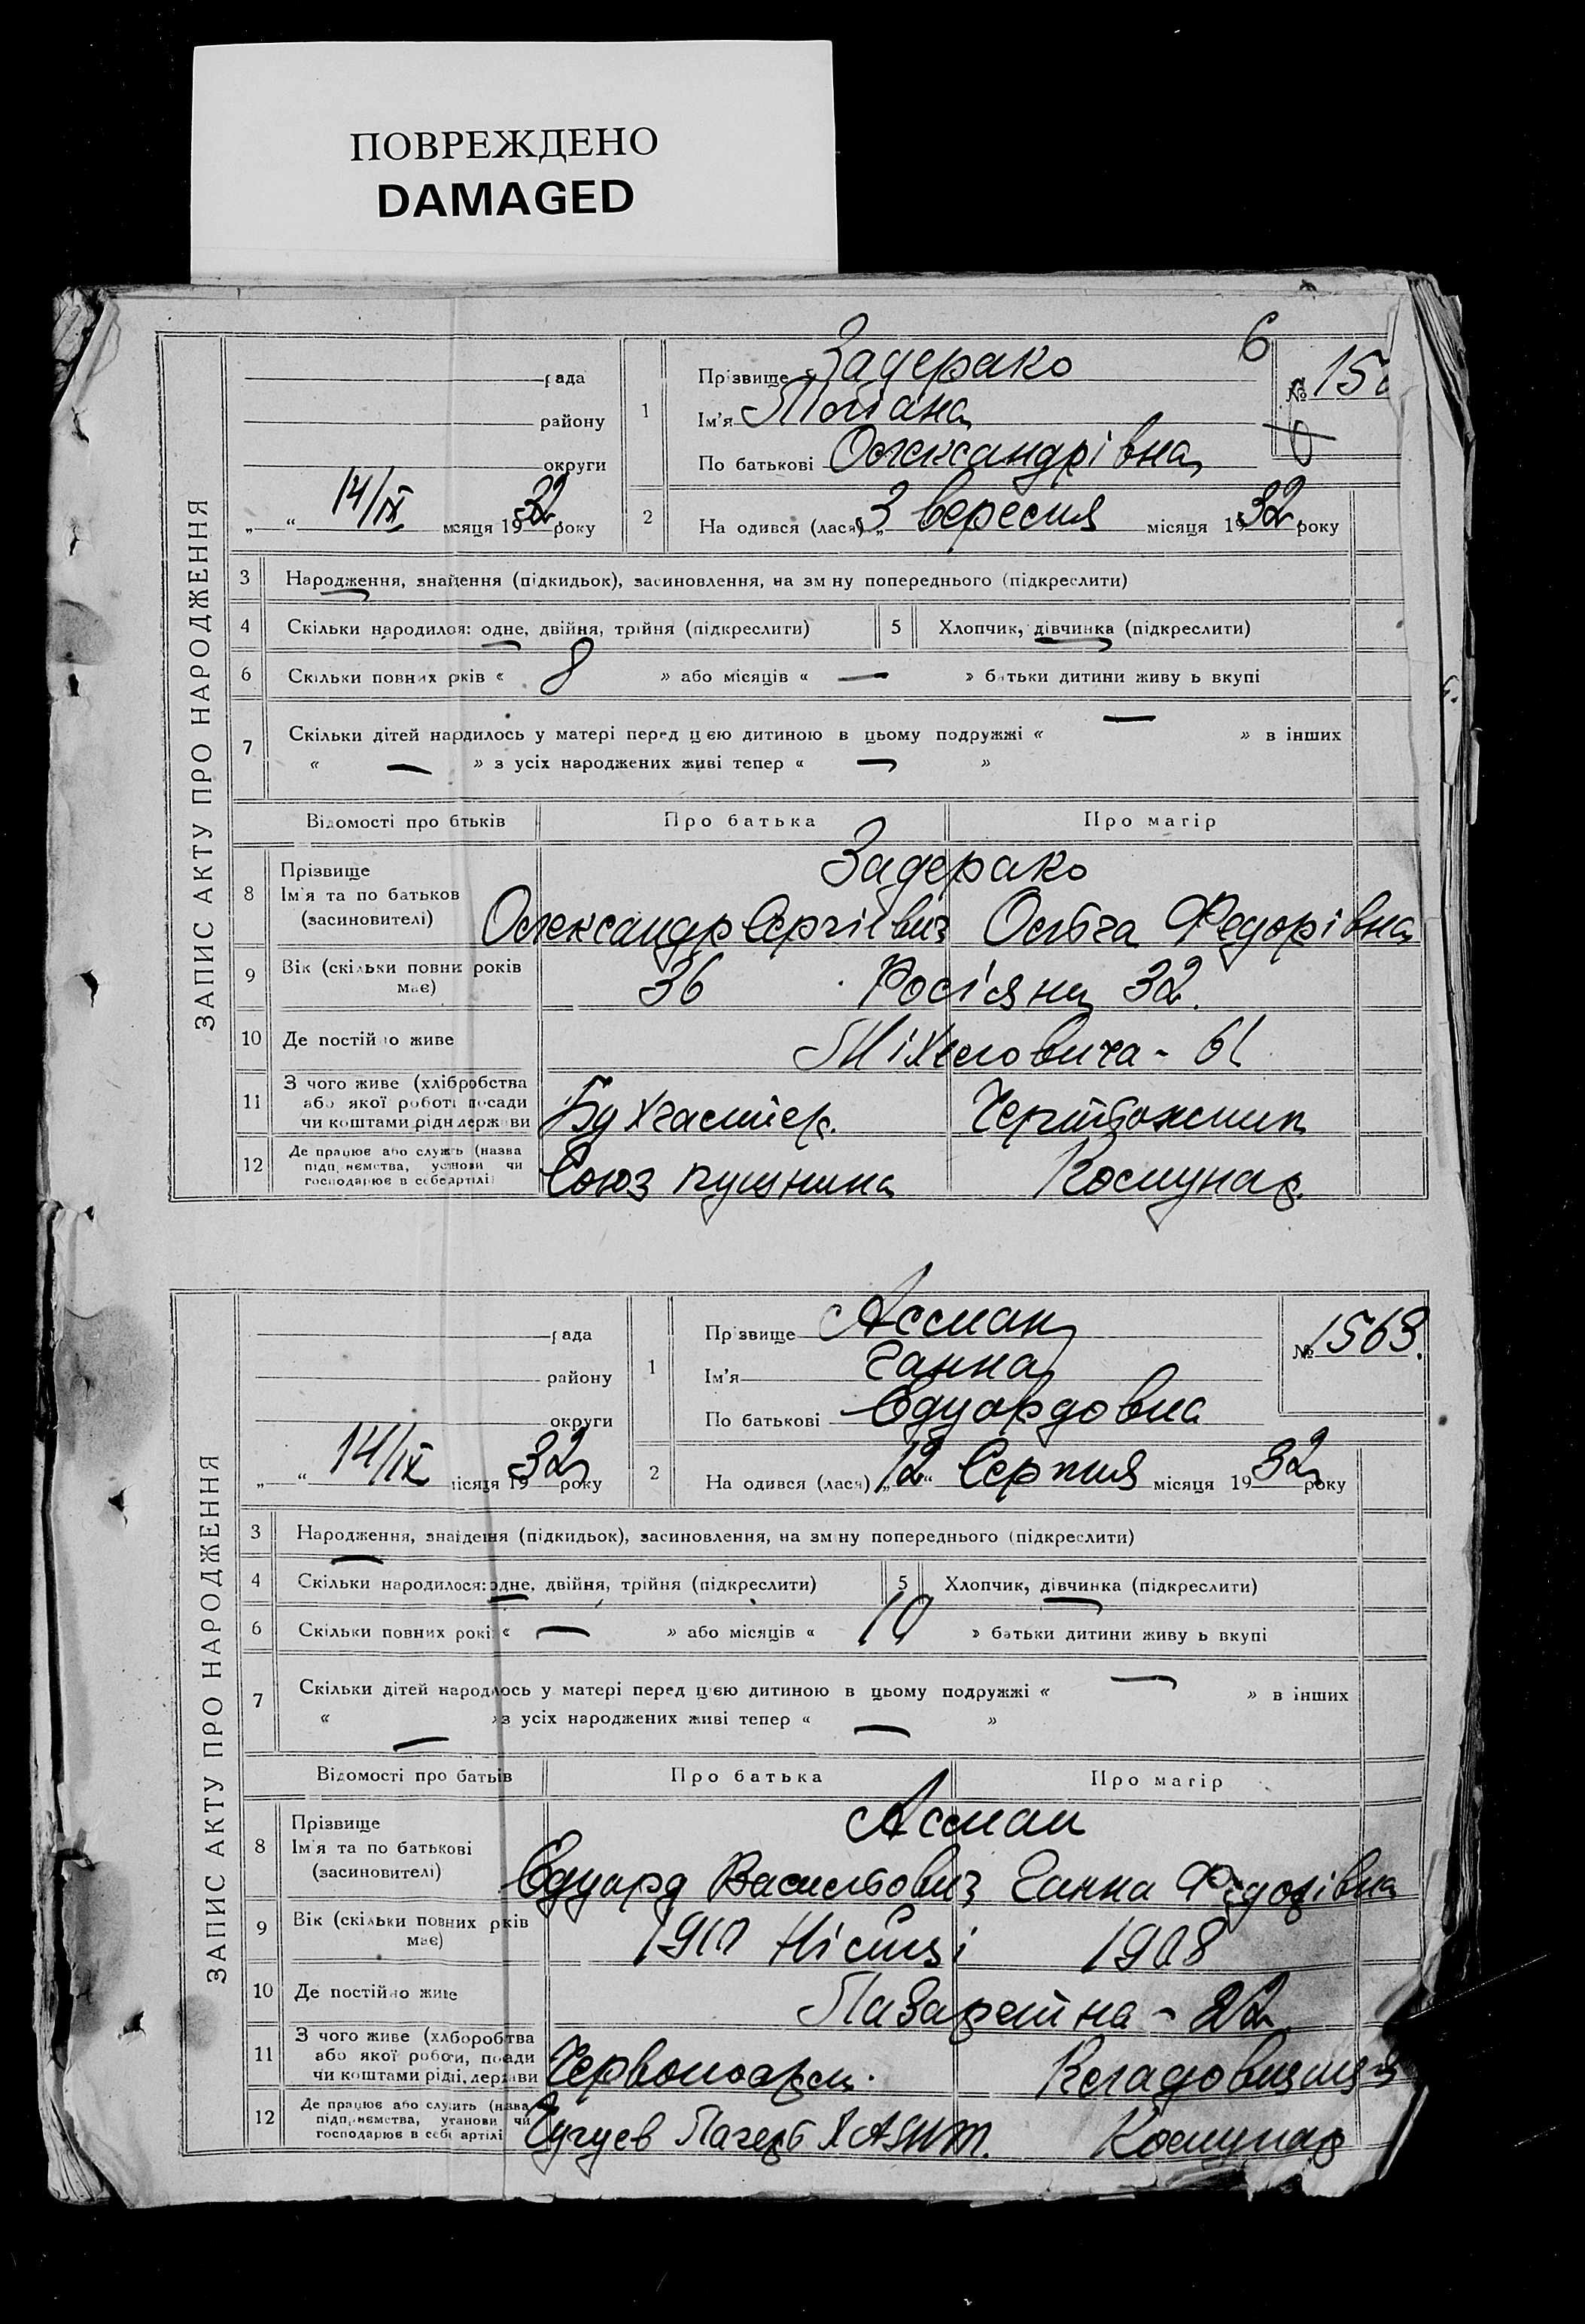 ПОВРЕЖДЕНО
DAMAGED
6
ЗАПИС АКТУ ПРО НАРОДЖЕННЯ
рада
району
округи
„ “ 14/IX місяця 1932 року
1
Прізвище Задерако
Ім'я
По батькові Олександрівна
№ 15
2
На одився (лася) „3 вересня місяця 1932 року
3 Народження, знайдення (підкидьок), засиновлення, на зм ну попереднього (підкреслити)
4 Скільки народилося: одне, двійня, трійня (підкреслити)
5 Хлопчик, дівчинка (підкреслити)
6 Скільки повних рків « 8 » або місяців « — » батьки дитини живу ь вкупі
7 Скільки дітей нардилось у матері перед цією дитиною в цьому подружжі « — » в інших
« — » з усіх народжених живі тепер « — »
Відомості про бтьків Про батька Про матір
8 Прізвище Задерако
Ім'я та по батьков
(засиновителі) Олександр Сергієвич Ольга Федорівна
9 Вік (скільки повни років має) 36 Росіяни 32.
10 Де постій о живе Міхеловича - 61
11 З чого живе (хлібробства
або якої роботі посади
чи коштами рідн держ ви Бухгалтер. Чертьожник
12 Де працює або служть (назва
підп, нємства, установи чи
господарює в себе артілі Союз пушнина Комунар.
ЗАПИС АКТУ ПРО НАРОДЖЕННЯ
рада
району
округи
„ “ 14/IX місяця 1932 року
1
Прізвище Ассман
Ім'я Ганна
По батькові Едуардовна
№ 1563.
2
На одився (лася) „12“ Серпня місяця 1932 року
3 Народження, знайдення (підкидьок), засиновлення, на зм ну попереднього (підкреслити)
4 Скільки народилося: одне, двійня, трійня (підкреслити)
5 Хлопчик, дівчинка (підкреслити)
6 Скільки повних рокі « — » або місяців « 10 » батьки дитини живу ь вкупі
7 Скільки дітей народилось у матері перед цією дитиною в цьому подружжі « — » в інших
« — » з усіх народжених живі тепер « — »
Відомості про батьів Про батька Про матір
8 Прізвище Ассман
Ім'я та по батькові
(засиновителі) Едуард Васильович Ганна Федорівна
9 Вік (скільки повних рків має) 1910 Німці 1908
10 Де постійно живе Лазаретна - 22
11 З чого живе (хлборобства
або якої роботи, посади
чи коштами рідні, держави Червоноарм.
12 Де працює або служить (назва
підп, нємства, установи чи
господарює в себе артілі Чугуєв Лагерь Комунар